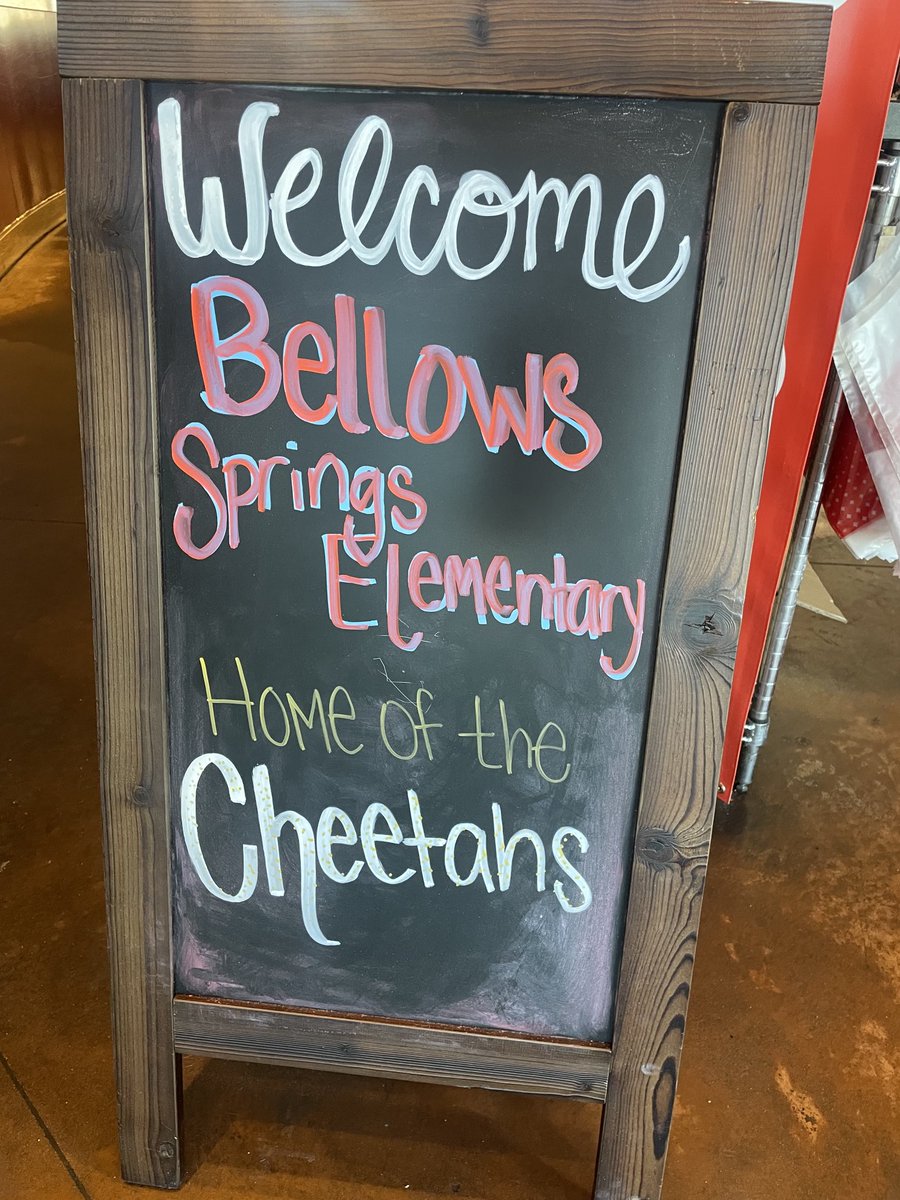 Welcome
Bellows
Springs
Elementary
Home of the
Cheetahs